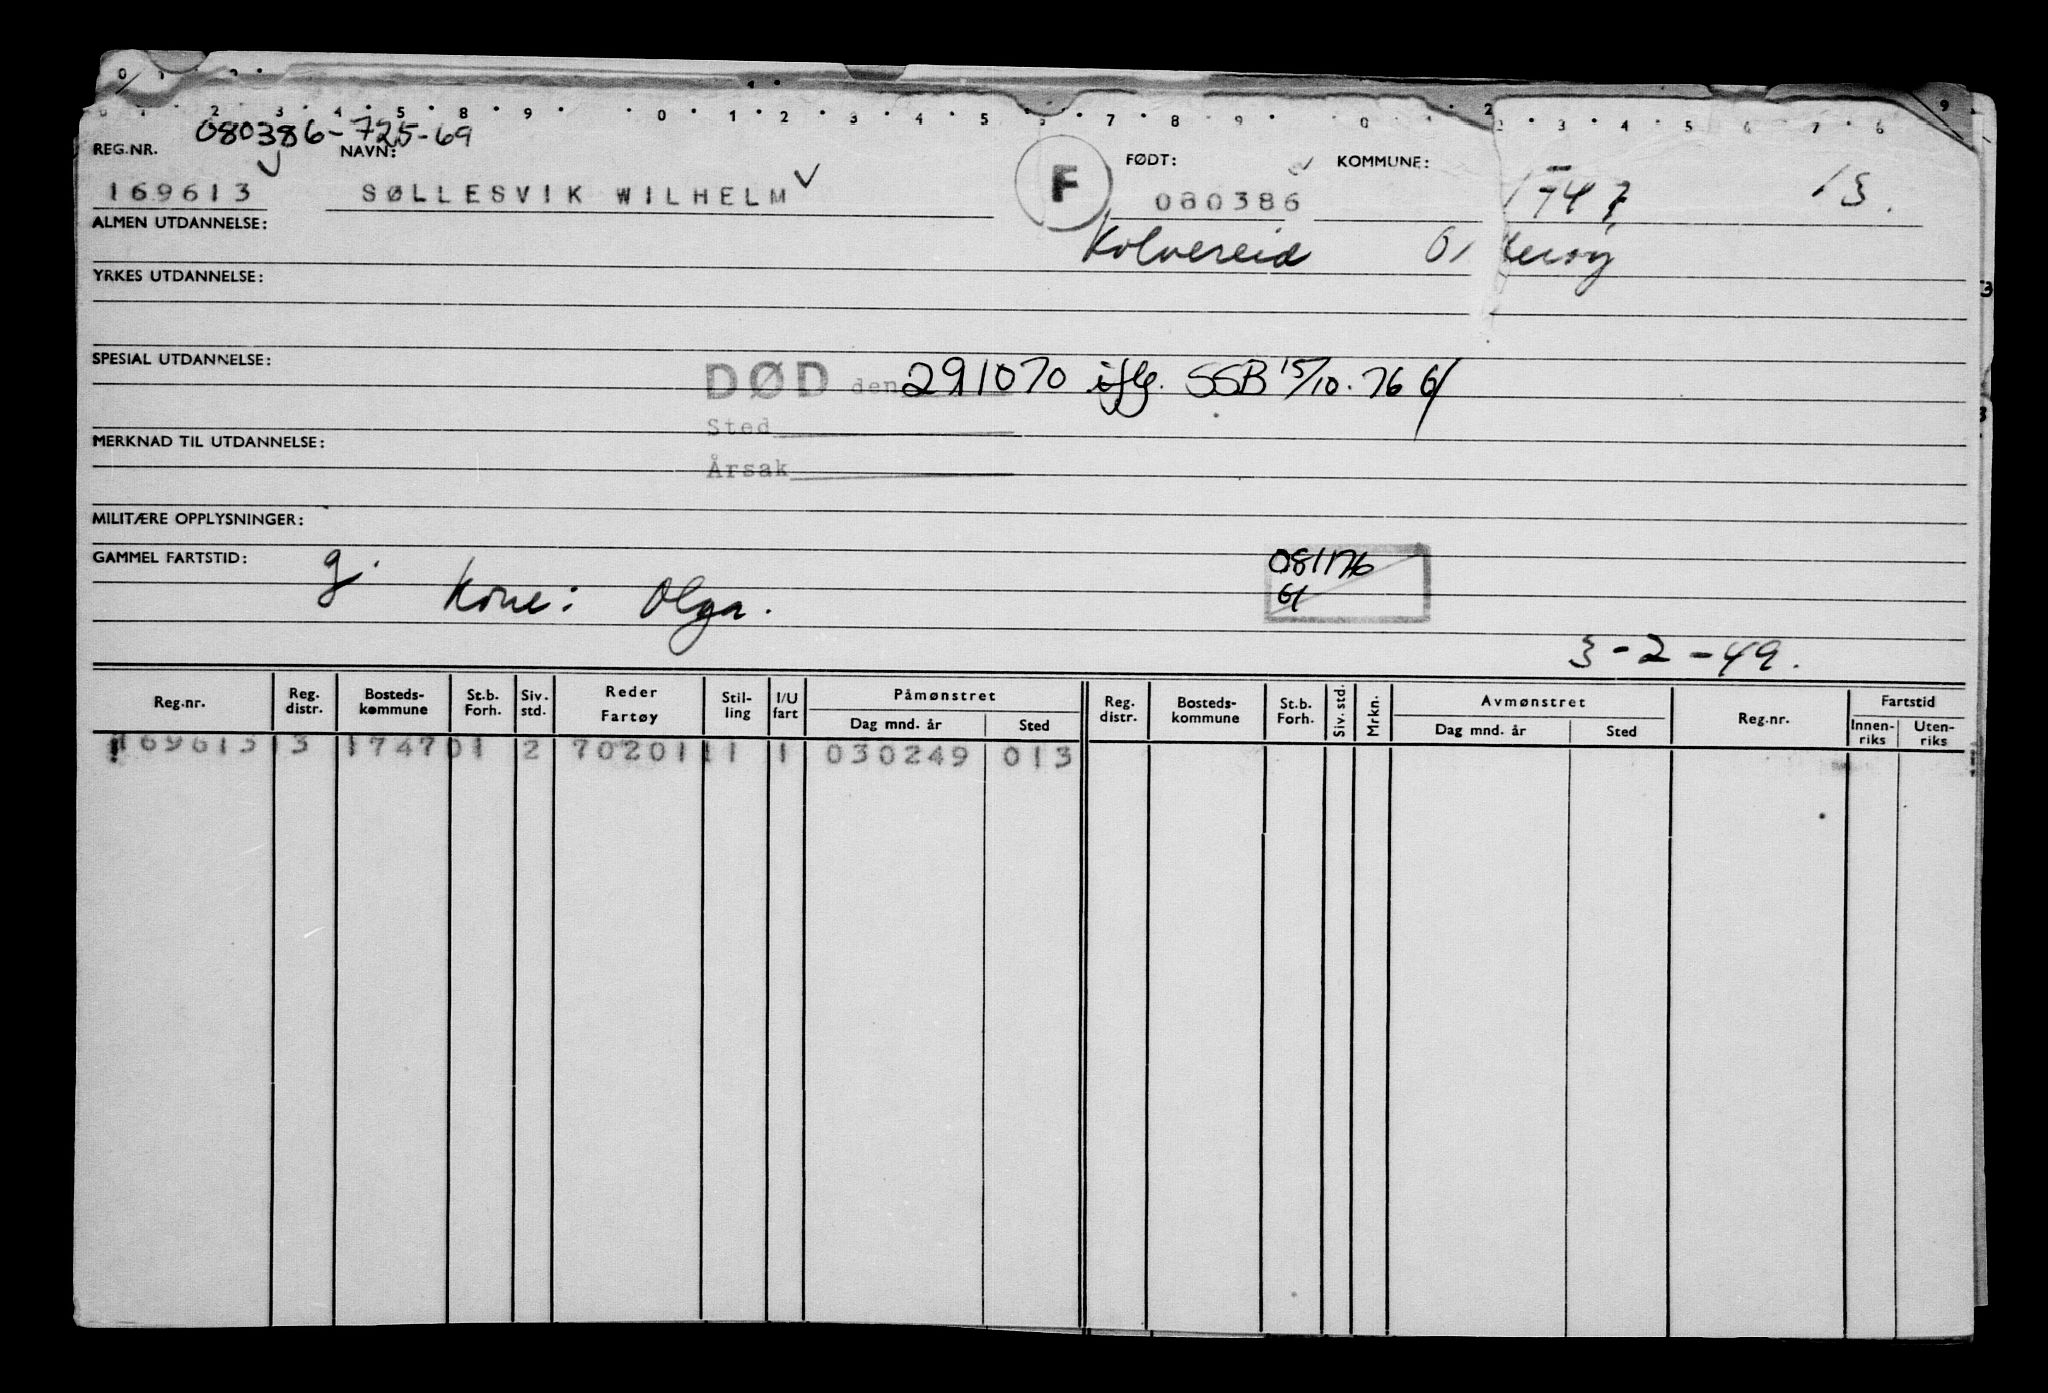 2 3 4 5 8 9 0 1 2 3 4 5 7 8 9 0 2 3 4 5 6 7 6 9
080386-725-69
REG.NR. NAVN: FØDT: KOMMUNE:
169613 SØLLESVIK WILHELM F 080386 1747 13.
ALMEN UTDANNELSE: Kolvereid
YRKES UTDANNELSE:
SPESIAL UTDANNELSE:
DØD den 291070 iflg. SSB 15/10.76 G/
Sted
MERKNAD TIL UTDANNELSE:
Årsak
MILITÆRE OPPLYSNINGER:
GAMMEL FARTSTID: g. Kone: Olga.
081176
G/
3-2-49.
Reg.nr. Reg. distr. Bosteds-kommune St.b. Forh. Siv. std. Reder Fartøy Stil-ling I/U fart Påmønstret Dag mnd. år Sted Reg. distr. Bosteds-kommune St.b. Forh. Siv. std. Mrkn. Avmønstret Dag mnd. år Sted Reg.nr. Fartstid Innen-riks Uten-riks
169613 3 1747 01 2 702011 1 1 030249 013